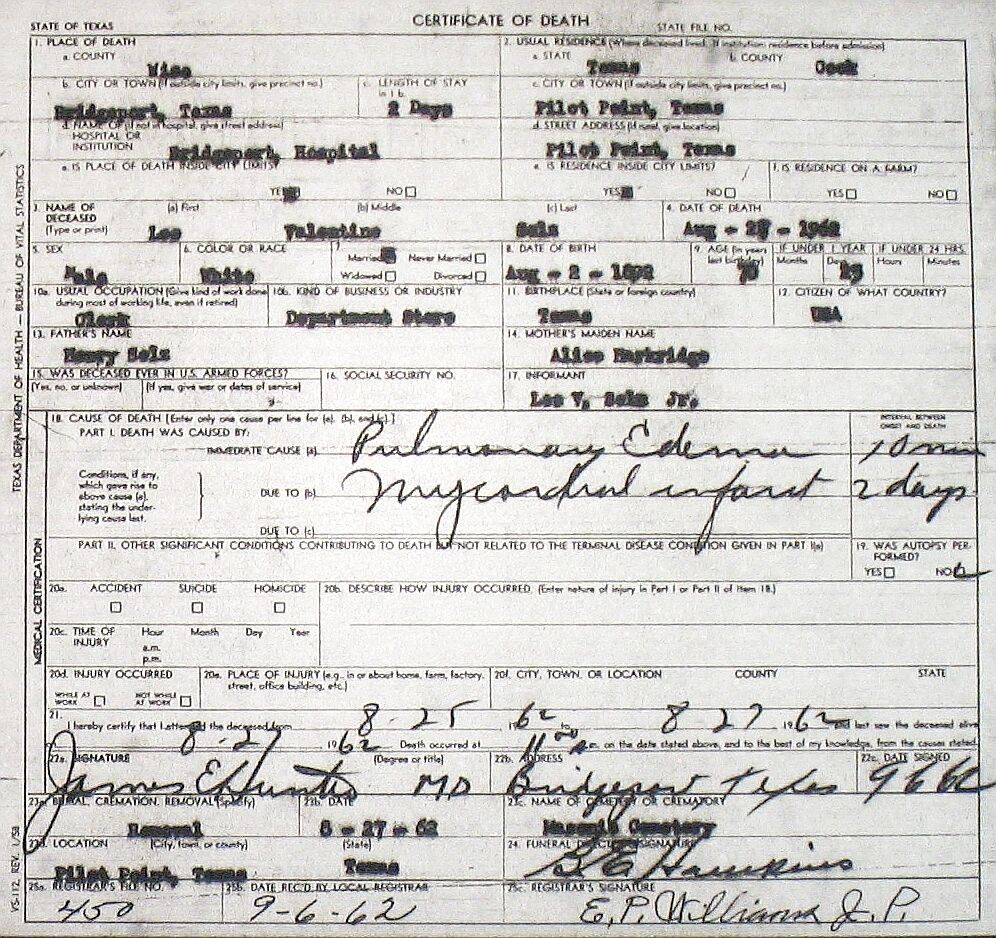 CERTIFICATE OF DEATH
STATE OF TEXAS STATE FILE NO.
1. PLACE OF DEATH
a. COUNTY
Wise
2. USUAL RESIDENCE (Where deceased lived. If institution: residence before admission)
a. STATE
Texas
b. COUNTY
Cook
b. CITY OR TOWN (If outside city limits, give precinct no.)
Bridgeport, Texas
c. LENGTH OF STAY
in 1 b.
2 Days
c. CITY OR TOWN (If outside city limits, give precinct no.)
Pilot Point, Texas
d. NAME OF (If not in hospital, give street address)
HOSPITAL OR
INSTITUTION
Bridgeport, Hospital
d. STREET ADDRESS (If rural, give location)
Pilot Point, Texas
e. IS PLACE OF DEATH INSIDE CITY LIMITS?
YES NO
e. IS RESIDENCE INSIDE CITY LIMITS?
YES NO
f. IS RESIDENCE ON A FARM?
YES NO
3. NAME OF
DECEASED
(Type or print)
(a) First (b) Middle (c) Last
Lee Valentine
4. DATE OF DEATH
Aug - 1962
5. SEX
Male
6. COLOR OR RACE
White
7.
Married Never Married
Widowed Divorced
8. DATE OF BIRTH
Aug - 2 - 1892
9. AGE (In years
last birthday)
70
IF UNDER 1 YEAR
Months Days
IF UNDER 24 HRS.
Hours Minutes
10a. USUAL OCCUPATION (Give kind of work done
during most of working life, even if retired)
Clerk
10b. KIND OF BUSINESS OR INDUSTRY
Department Store
11. BIRTHPLACE (State or foreign country)
Texas
12. CITIZEN OF WHAT COUNTRY?
USA
13. FATHER'S NAME
Henry
14. MOTHER'S MAIDEN NAME
Alice Harkridge
15. WAS DECEASED EVER IN U.S. ARMED FORCES?
(Yes, no, or unknown) (If yes, give war or dates of service)
16. SOCIAL SECURITY NO.
17. INFORMANT
Lee V. Jr.
18. CAUSE OF DEATH [Enter only one cause per line for (a), (b), and (c).]
INTERVAL BETWEEN
ONSET AND DEATH
PART I. DEATH WAS CAUSED BY:
IMMEDIATE CAUSE (a) Pulmonary Edema 10 min
Conditions, if any,
which gave rise to
above cause (a),
stating the under-
lying cause last.
DUE TO (b) Mycordial infarct 2 days
DUE TO (c)
PART II. OTHER SIGNIFICANT CONDITIONS CONTRIBUTING TO DEATH BUT NOT RELATED TO THE TERMINAL DISEASE CONDITION GIVEN IN PART I(a)
19. WAS AUTOPSY PER-
FORMED?
YES NO
20a. ACCIDENT SUICIDE HOMICIDE
20b. DESCRIBE HOW INJURY OCCURRED. (Enter nature of injury in Part I or Part II of Item 18.)
20c. TIME OF
INJURY
Hour Month Day Year
a.m.
p.m.
20d. INJURY OCCURRED
WHILE AT
WORK
NOT WHILE
AT WORK
20e. PLACE OF INJURY (e.g., in or about home, farm, factory,
street, office building, etc.)
20f. CITY, TOWN, OR LOCATION COUNTY STATE
21.
I hereby certify that I attended the deceased from 8-25 1962 to 8-27 1962 and last saw the deceased alive
on 8-27 1962 Death occurred at 11 m. on the date stated above, and to the best of my knowledge, from the causes stated.
22a. SIGNATURE (Degree or title)
James E Hunter MD
22b. ADDRESS
Bridgeport Texas
22c. DATE SIGNED
9 6 62
23a. BURIAL, CREMATION, REMOVAL (Specify)
Removal
23b. DATE
8 - 27 - 62
23c. NAME OF CEMETERY OR CREMATORY
Masonic Cemetery
23d. LOCATION (City, town, or county) (State)
Pilot Point, Texas Texas
24. FUNERAL DIRECTOR'S SIGNATURE
Hawkins
25a. REGISTRAR'S FILE NO.
450
25b. DATE REC'D BY LOCAL REGISTRAR
9-6-62
25c. REGISTRAR'S SIGNATURE
E.P. Williams J.P.
TEXAS DEPARTMENT OF HEALTH — BUREAU OF VITAL STATISTICS
MEDICAL CERTIFICATION
VS-112 REV. 1/58